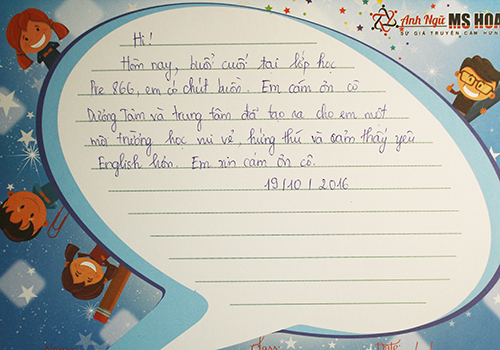 Anh Ngữ MS HOA
SỨ GIẢ TRUYỀN CẢM HỨNG
Hi!
Hôm nay, buổi cuối tại lớp học
Pre 866, em có chút buồn. Em cảm ơn cô
Dương Tâm và trung tâm đã tạo ra cho em một
môi trường học vui vẻ, hứng thú và cảm thấy yêu
English hơn. Em xin cảm ơn cô.
19/10/2016
Class
Date: